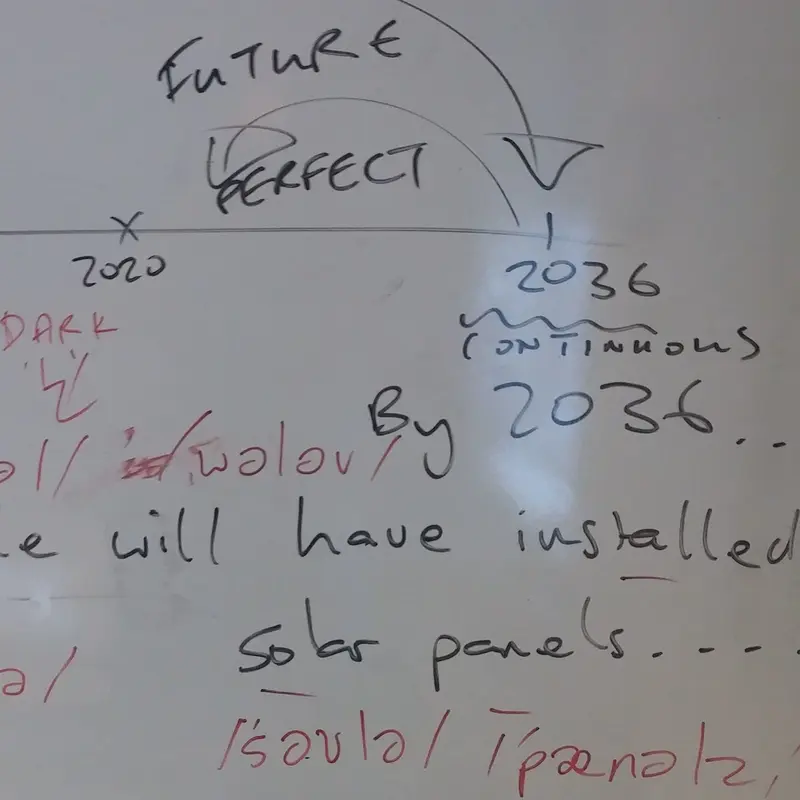 FUTURE
PERFECT
2020
2036
CONTINUOUS
DARK
By 2036...
əl/ /wələʊ/
will have installed
solar panels.----
ə/
/ˈsəʊlə/ /ˈpænəlz/